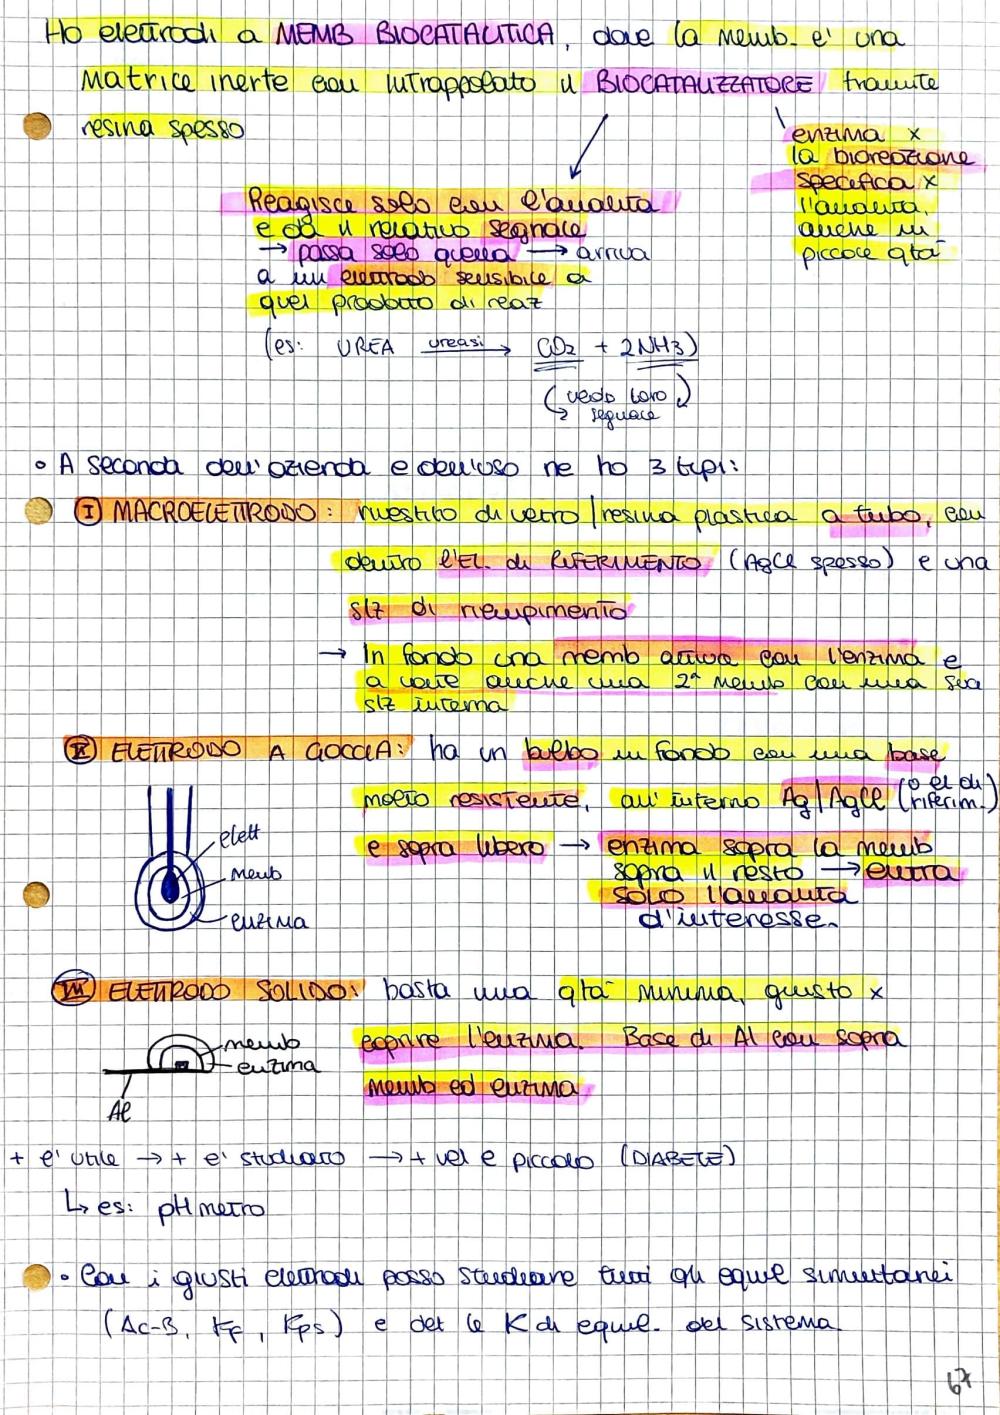 Ho elettrodi a MEMB BIOCATALITICA, dove la memb. e' una
matrice inerte con intrappolato il BIOCATALIZZATORE tramite
resina spesso
enzima x
la bioreazione
specifica x
l'analita,
anche in
piccole qtà
Reagisce solo con l'analita
e dà il relativo segnale
→ passa solo quella → arriva
a un elettrodo sensibile a
quel prodotto di reaz
(es: UREA ureasi → CO2 + 2NH3)
(vedo loro)
segnale
• A seconda dell'azienda e dell'uso ne ho 3 tipi:
I MACROELETTRODO: rivestito di vetro/resina plastica a tubo, con
dentro l'EL. di RIFERIMENTO (AgCl spesso) e una
slz di riempimento
→ In fondo una memb attiva con l'enzima e
a volte anche una 2ª memb con una sua
slz interna
II ELETTRODO A GOCCIA: ha un bulbo in fondo con una base
molto resistente, all'interno Ag/AgCl (o el di riferim.)
e sopra libero → enzima sopra la memb
sopra il resto → entra
solo l'analita
d'interesse.
elett
memb
enzima
III ELETTRODO SOLIDO: basta una qtà minima, giusto x
coprire l'enzima. Base di Al con sopra
memb ed enzima
memb
enzima
Al
+ e' utile → + e' studiato → + vel e piccolo (DIABETE)
↳ es: pHmetro
• Con i giusti elettrodi posso studiare tutti gli equil simultanei
(Ac-B, Kf, Kps) e det le K di equil. del sistema.
67